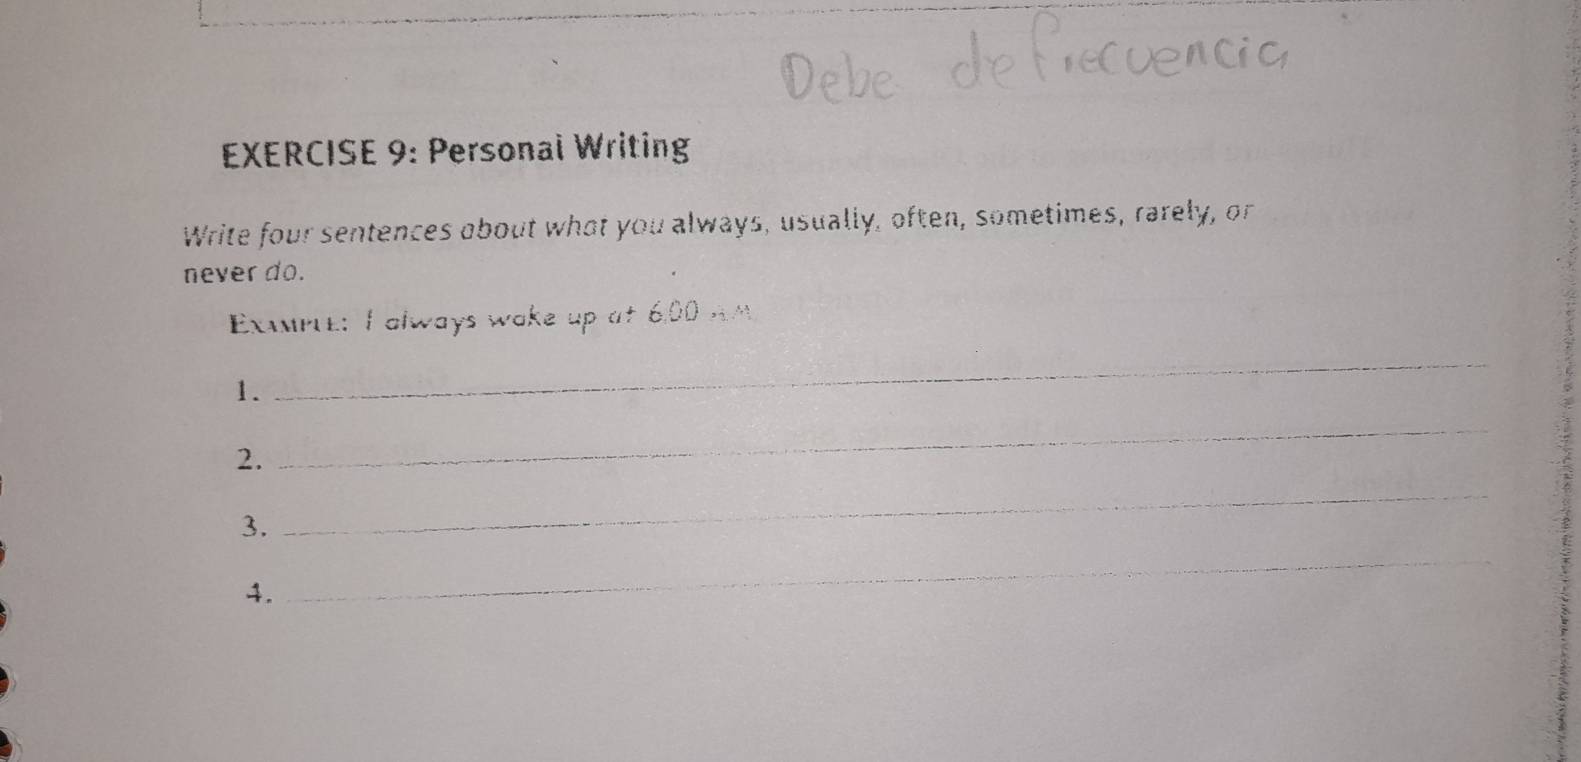 Debe de frecuencia
EXERCISE 9: Personal Writing
Write four sentences about what you always, usually, often, sometimes, rarely, or
never do.
EXAMPLE: I always wake up at 6:00 AM
1.
2.
3.
4.